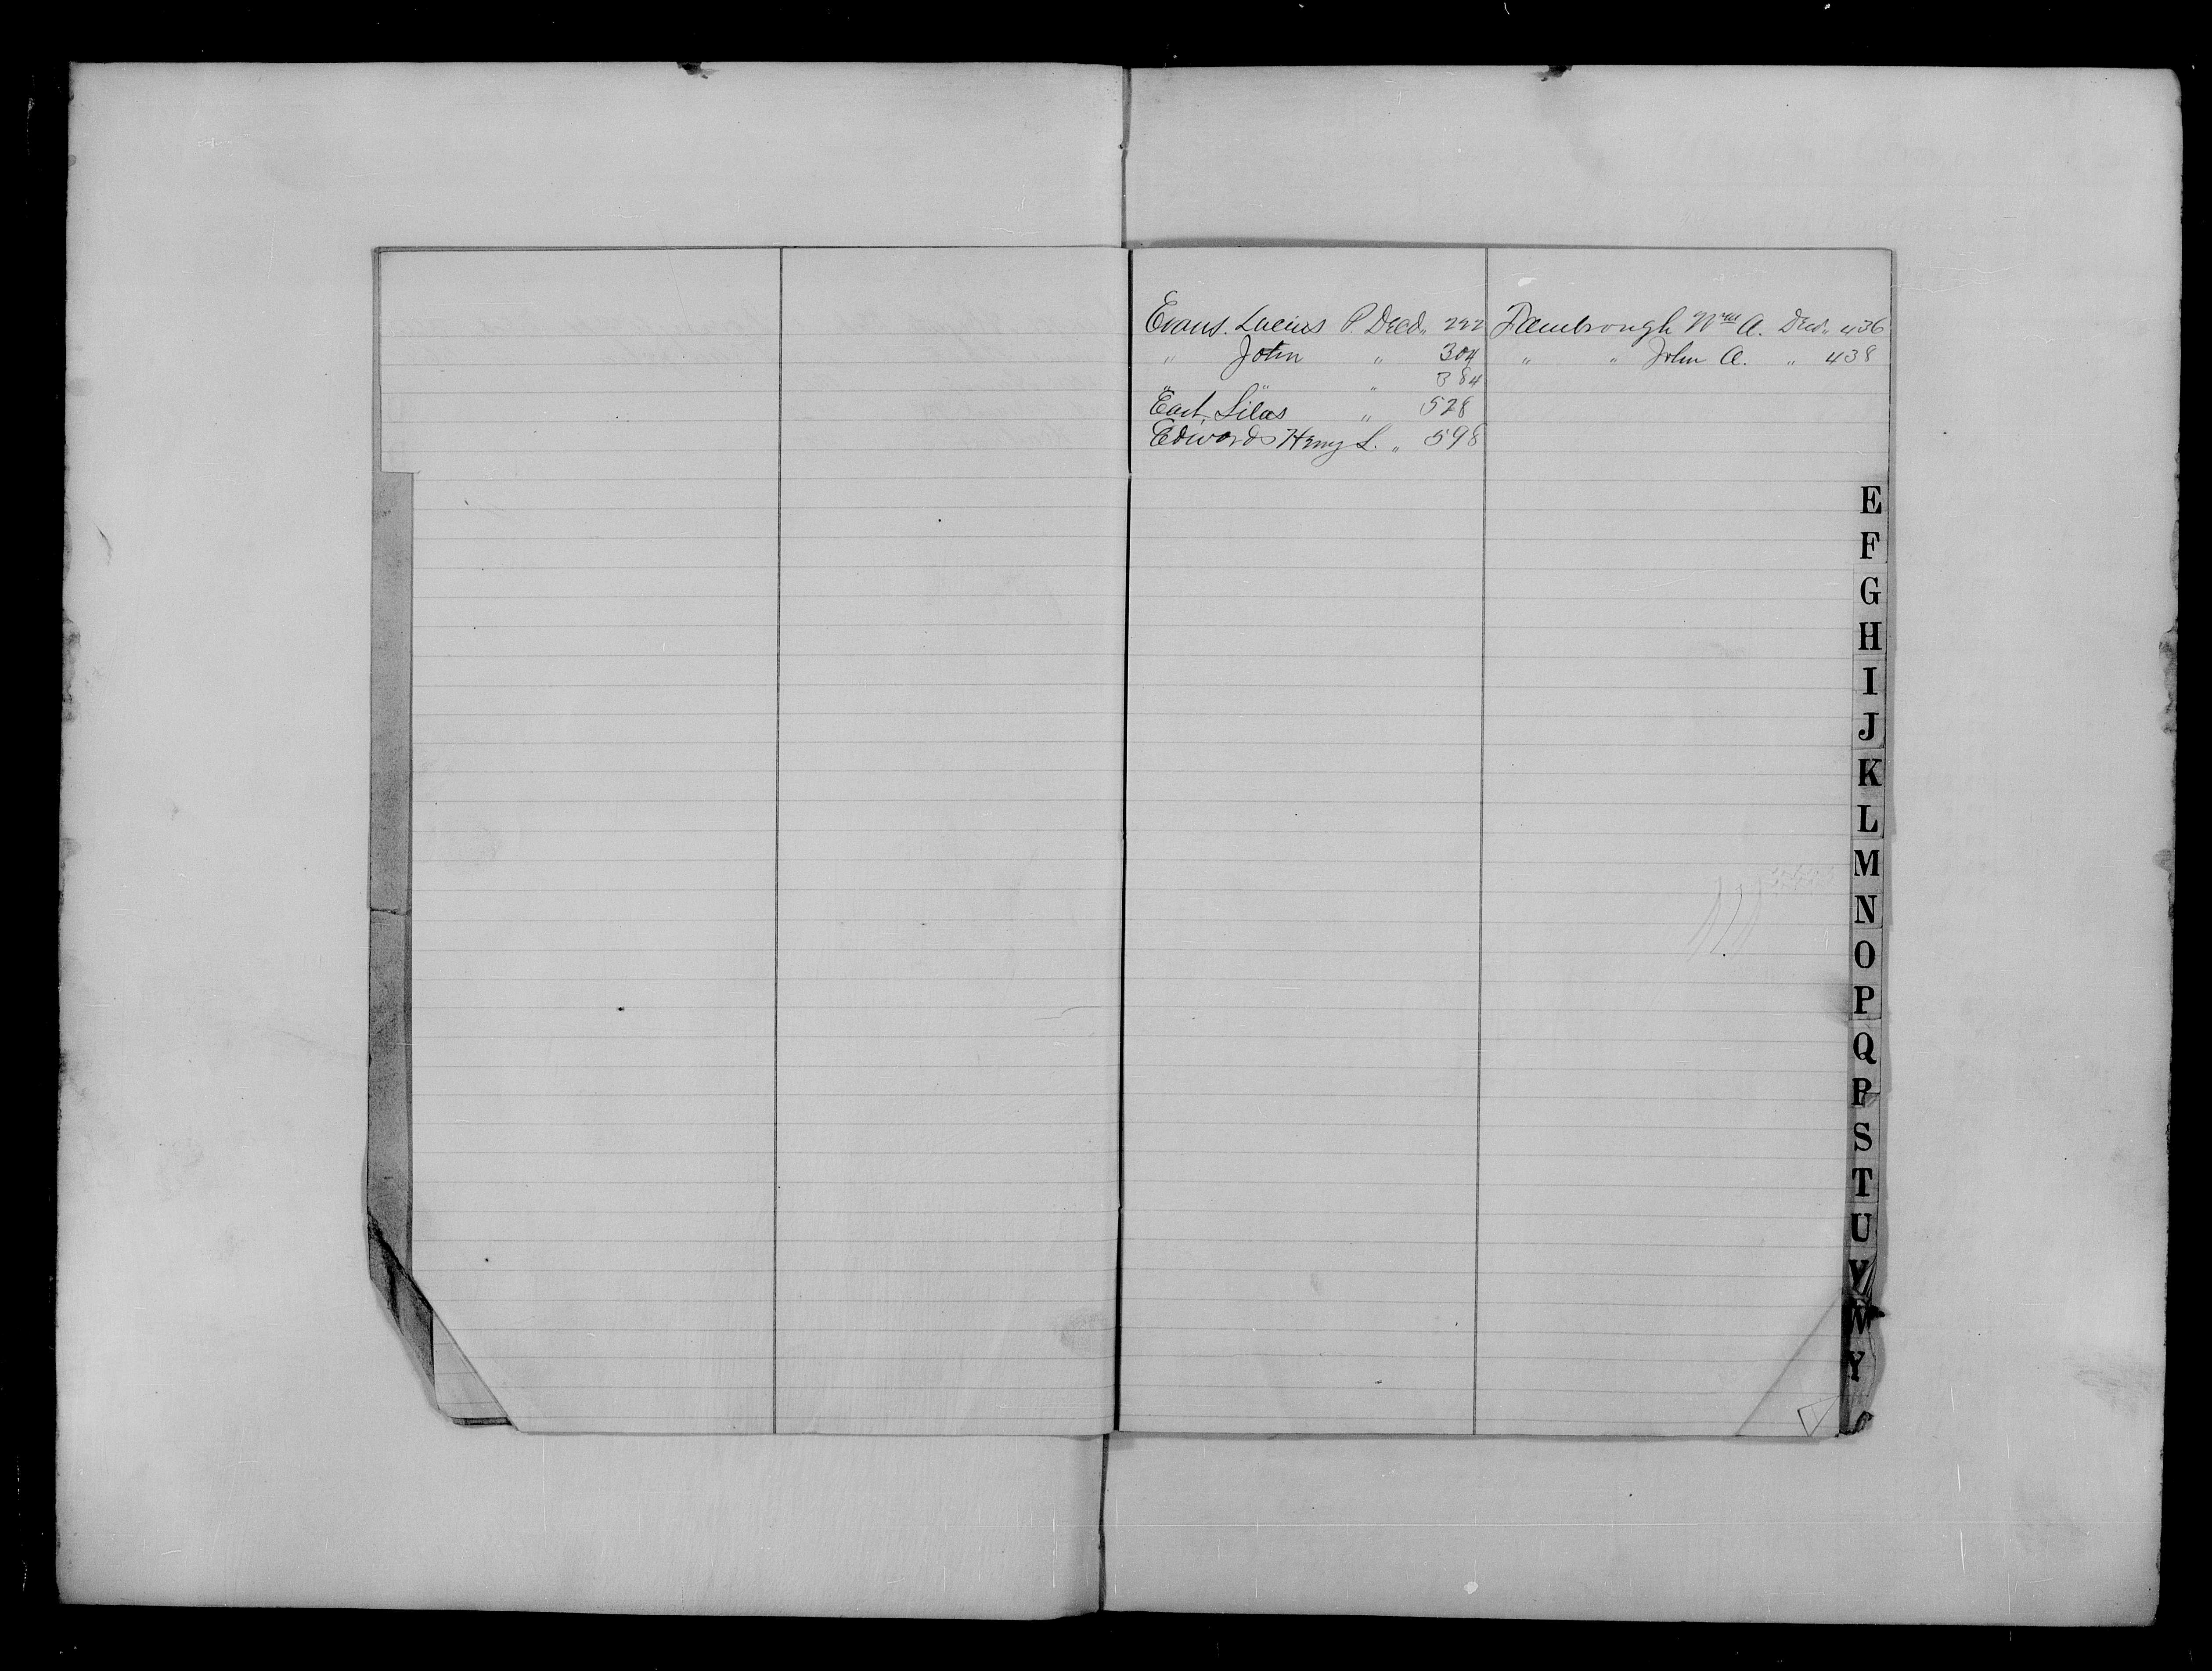 Evans. Lucius P. Decd„ 222
„ John „ 304
„ „ „ 384
East, Silas „ 528
Edwards Henry L. „ 598
Fambrough Wm A. Decd„ 436
„ „ John A. „ 438
E
F
G
H
I
J
K
L
M
N
O
P
Q
R
S
T
U
V
W
Y